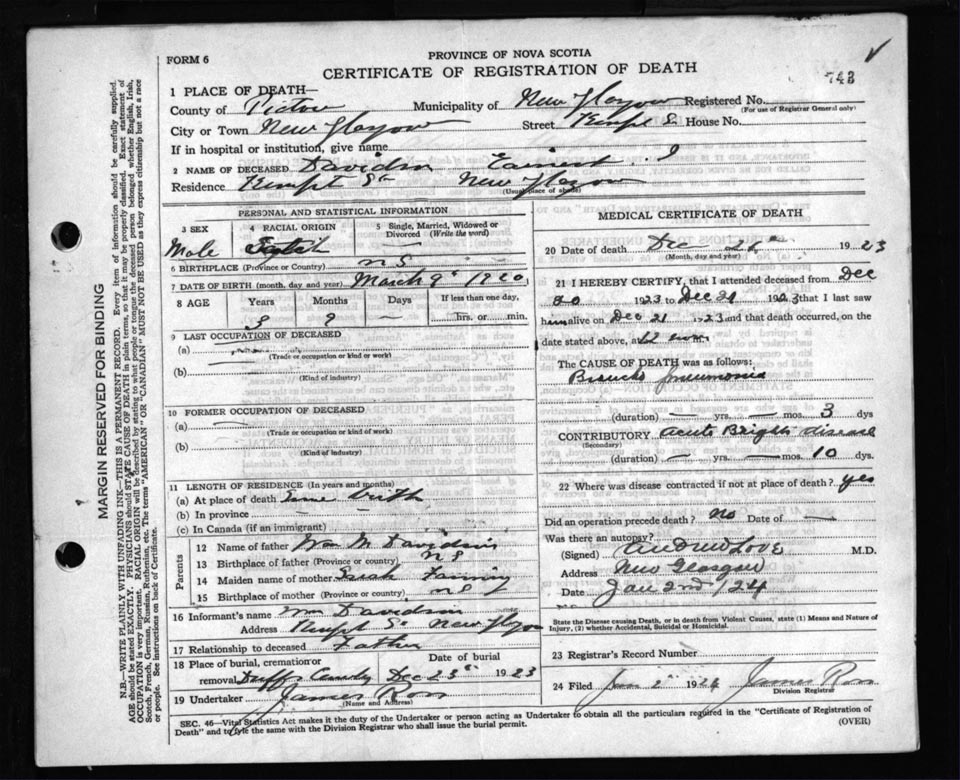 FORM 6
PROVINCE OF NOVA SCOTIA
CERTIFICATE OF REGISTRATION OF DEATH
743
1 PLACE OF DEATH—
County of Pictou Municipality of New Glasgow Registered No.
(For use of Registrar General only)
City or Town New Glasgow Street Kempt St House No.
If in hospital or institution, give name
2 NAME OF DECEASED Davidson J
Residence Kempt St New Glasgow
(Usual place of abode)
PERSONAL AND STATISTICAL INFORMATION
3 SEX 4 RACIAL ORIGIN 5 Single, Married, Widowed or Divorced (Write the word)
Male —
6 BIRTHPLACE (Province or Country) N S
7 DATE OF BIRTH (month, day and year) March 9th 1920
8 AGE Years Months Days If less than one day,
3 9 — hrs. or min.
9 LAST OCCUPATION OF DECEASED
(a)
(Trade or occupation or kind or work)
(b)
(Kind of industry)
10 FORMER OCCUPATION OF DECEASED
(a) —
(Trade or occupation or kind or work)
(b)
(Kind of industry)
11 LENGTH OF RESIDENCE (In years and months)
(a) At place of death Since Birth
(b) In province —
(c) In Canada (if an immigrant)
Parents
12 Name of father Wm M Davidson
13 Birthplace of father (Province or country) N S
14 Maiden name of mother Sarah
15 Birthplace of mother (Province or country) N S
16 Informant's name Wm Davidson
Address Kempt St New Glasgow
17 Relationship to deceased Father
18 Place of burial, cremation or removal Duffs Date of burial Dec 23 1923
19 Undertaker James Ross
(Name and Address)
MEDICAL CERTIFICATE OF DEATH
20 Date of death Dec 1923
(Month, day and year)
21 I HEREBY CERTIFY, that I attended deceased from Dec
20 1923 to Dec 21 1923 that I last saw
him alive on Dec 21 1923 and that death occurred, on
date stated above, at 12 noon
The CAUSE OF DEATH was as follows:
Broncho Pneumonia
(duration) — yrs. — mos. 3 dys
CONTRIBUTORY Acute Brights disease
(Secondary)
(duration) — yrs. — mos. 10 dys.
22 Where was disease contracted if not at place of death? yes
Did an operation precede death? No Date of —
Was there an autopsy?
(Signed) Andrew Love M.D.
Address New Glasgow
Date Jan 2nd 1924
State the Disease causing Death, or in death from Violent Causes, state (1) Means and Nature of Injury, (2) whether Accidental, Suicidal or Homicidal.
23 Registrar's Record Number
24 Filed Jan 2 1924 James Ross
Division Registrar
SEC. 46—Vital Statistics Act makes it the duty of the Undertaker or person acting as Undertaker to obtain all the particulars required in the "Certificate of Registration of
Death" and to file the same with the Division Registrar who shall issue the burial permit. (OVER)
MARGIN RESERVED FOR BINDING
N.B.—WRITE PLAINLY WITH UNFADING INK—THIS IS A PERMANENT RECORD. Every item of information should be carefully supplied.
AGE should be stated EXACTLY. PHYSICIANS should STATE CAUSE OF DEATH in plain terms, so that it may be properly classified. Exact statement of
OCCUPATION is very important. RACIAL ORIGIN will be described by stating to what people or tongue the deceased person belonged whether English, Irish,
Scotch, French, German, Russian, Ruthenian, etc. The terms "AMERICAN" OR "CANADIAN" MUST NOT BE USED as they express citizenship but not a race
or people. See instructions on back of Certificate.